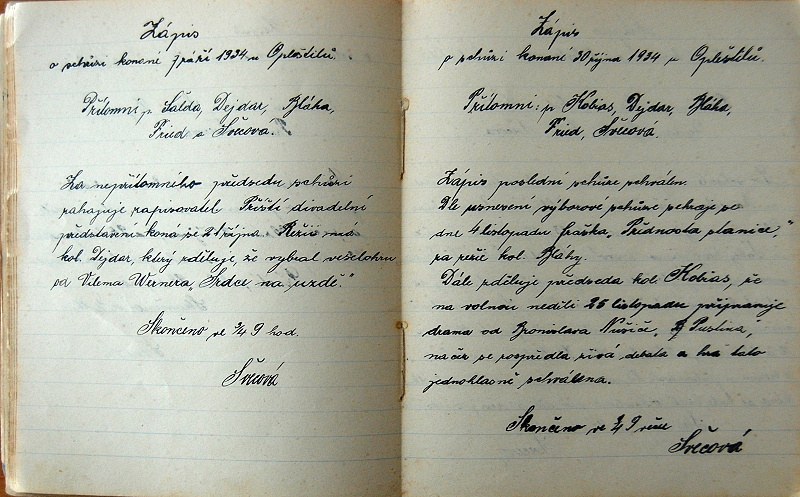 Zápis
o schůzi konané 7 září 1934 u Opleštilů.
Přítomni p. Šalda, Dejdar, Bláha,
Fried a Švecová.
Za nepřítomného předsedu schůzi
zahajuje zapisovatel Příští divadelní
představení koná se 21 října. Režii má
kol. Dejdar, který sděluje, že vybral veselohru
od Viléma Wernera, Srdce na uzdě."
Skončeno ve 3/4 9 hod.
Švecová
Zápis
o schůzi konané 30 října 1934 u Opleštilů.
Přítomni: p. Kobias, Dejdar, Bláha,
Fried, Švecová.
Zápis poslední schůze schválen.
Dle usnesení výborové schůze sehraje se
dne 4 listopadu fraška „Přednosta stanice,"
za režie kol. Bláhy.
Dále sděluje předseda kol. Kobias, že
na volnou neděli 25 listopadu
drama od Bronislava Nušiče, Pustina",
načež se rozpředla živá debata a hra tato
jednohlasně schválena.
Skončeno ve 1/4 9 večer
Švecová